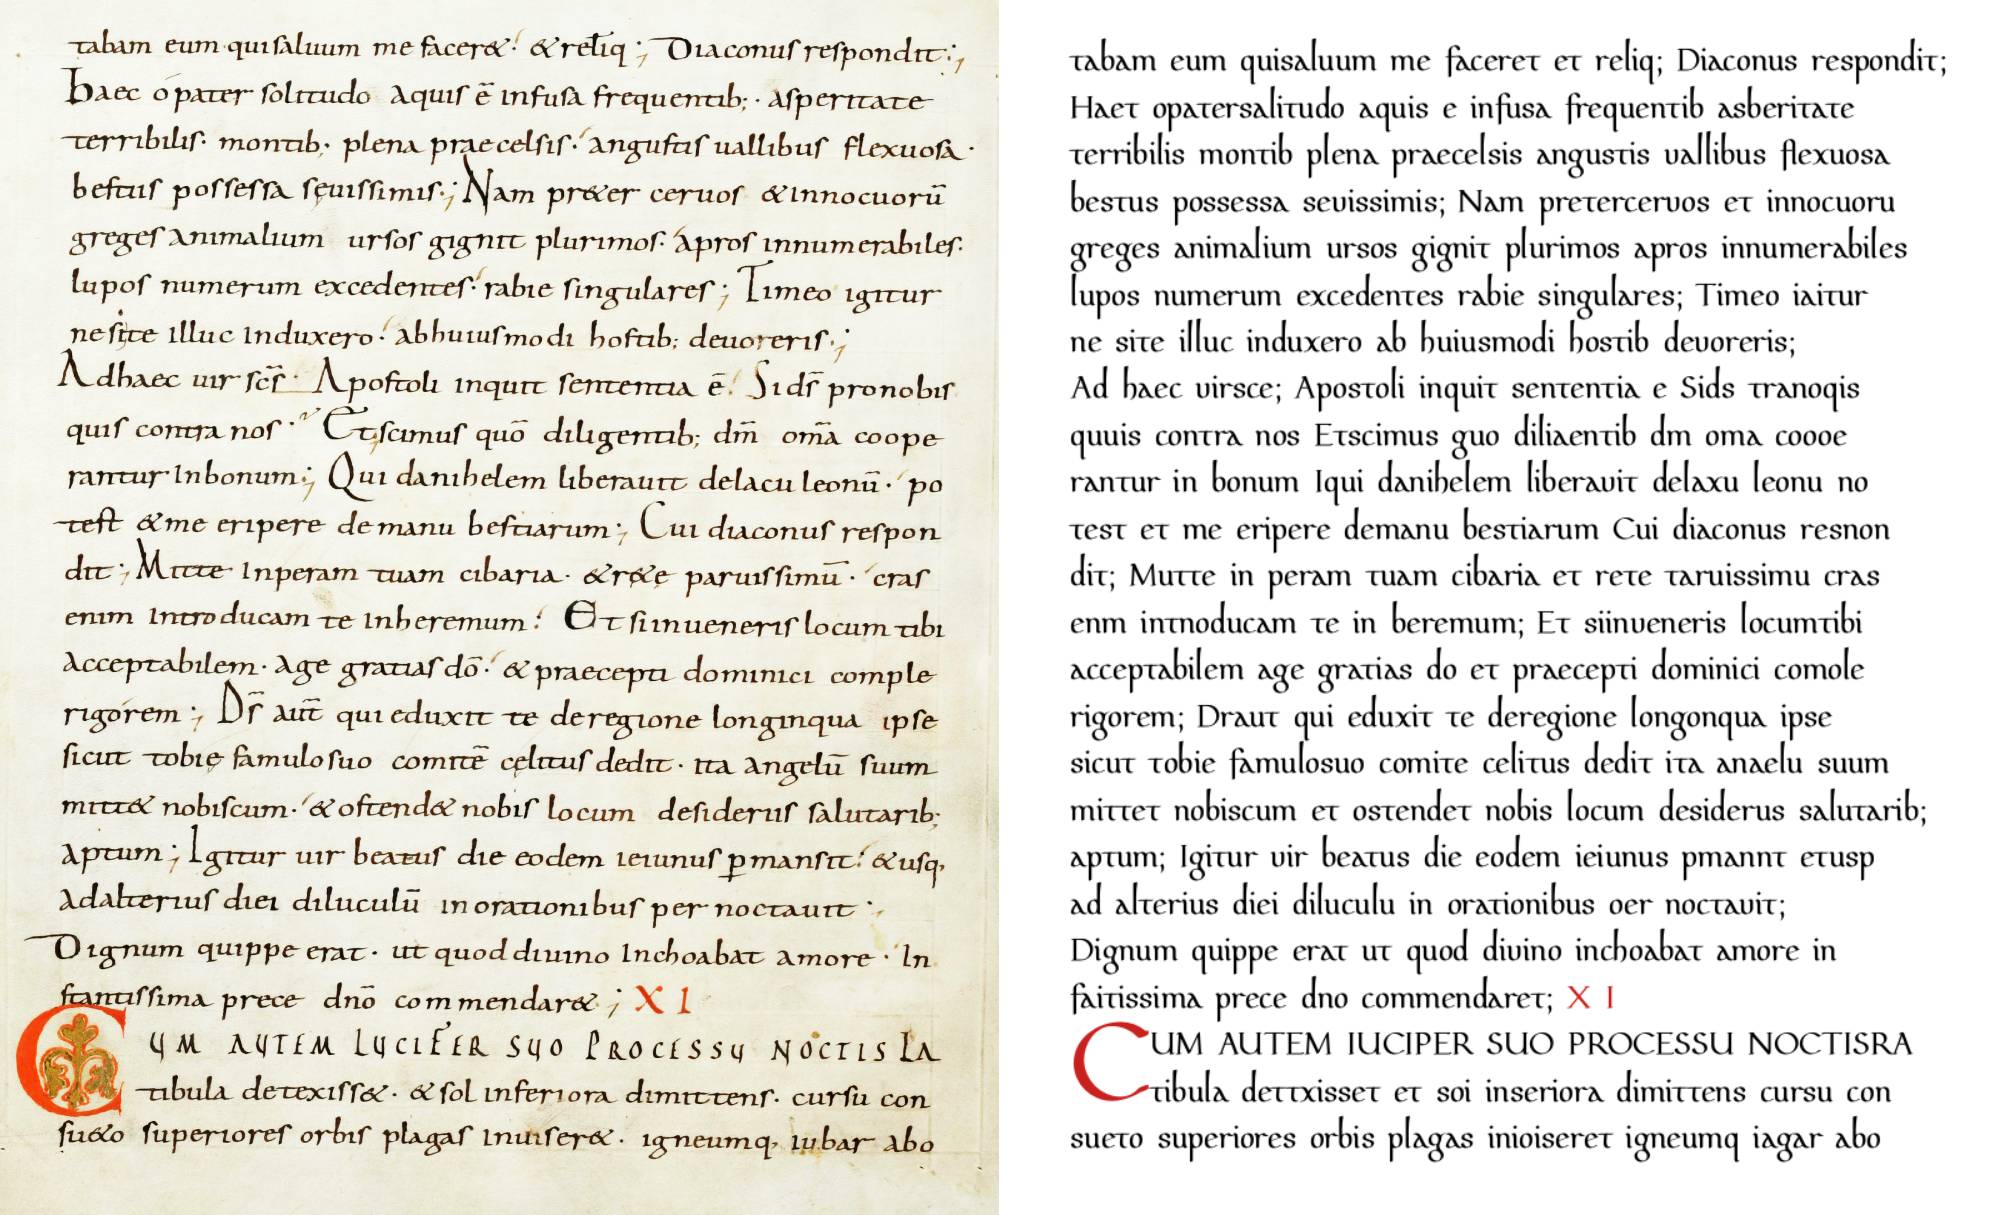 tabam eum quisaluum me facer& · & reliq; Diaconus respondit;
Haec o pater solitudo aquis ē infusa frequentib; · asperitate
terribilis · montib; plena praecelsis · angustis uallibus flexuosa ·
bestiis possessa sęuissimis; Nam pr&er ceruos & innocuorū
greges animalium ursos gignit plurimos · apros innumerabiles ·
lupos numerum excedentes · rabie singulares; Timeo igitur
ne site illuc induxero · abhuiusmodi hostib; deuoreris;
Adhaec uir scs̄ · Apostoli inquit sententia ē · Si ds̄ pronobis
quis contra nos · Et scimus quō diligentib; dm̄ om̄a coope
rantur inbonum; Qui danihelem liberauit delacu leonū · po
test & me eripere demanu bestiarum; Cui diaconus respon
dit; Mitte inperam tuam cibaria · & r&ę paruissimū · cras
enim introducam te inheremum · Et si inueneris locum tibi
acceptabilem · age gratias dō · & praecepti dominici comple
rigorem; Ds̄ aut̄ qui eduxit te deregione longinqua ipse
sicut tobię famulo suo comitē cęlitus dedit · ita angelū suum
mitt& nobiscum · & ostend& nobis locum desideriis salutarib;
aptum; Igitur uir beatus die eodem ieiunus ꝑmansit · & usq,
adalterius diei diluculū inorationibus per noctauit ·
Dignum quippe erat · ut quod diuino inchoabat amore · In
stantissima prece dnō commendar&; XI
CUM AUTEM LUCIFER SUO PROCESSU NOCTIS LA
tibula detexiss& · & sol inferiora dimittens · cursu con
su&o superiores orbis plagas inuiser& · igneumq, iubar abo
tabam eum quisaluum me faceret et reliq; Diaconus respondit;
Haet opatersalitudo aquis e infusa frequentib asberitate
terribilis montib plena praecelsis angustis uallibus flexuosa
bestus possessa seuissimis; Nam preterceruos et innocuoru
greges animalium ursos gignit plurimos apros innumerabiles
lupos numerum excedentes rabie singulares; Timeo iaitur
ne site illuc induxero ab huiusmodi hostib deuoreris;
Ad haec uirsce; Apostoli inquit sententia e Sids tranoqis
quuis contra nos Etscimus guo diliaentib dm oma coooe
rantur in bonum Iqui danihelem liberauit delaxu leonu no
test et me eripere demanu bestiarum Cui diaconus resnon
dit; Mutte in peram tuam cibaria et rete taruissimu cras
enm intnoducam te in beremum; Et siinueneris locumtibi
acceptabilem age gratias do et praecepti dominici comole
rigorem; Draut qui eduxit te deregione longonqua ipse
sicut tobie famulosuo comite celitus dedit ita anaelu suum
mittet nobiscum et ostendet nobis locum desiderus salutarib;
aptum; Igitur uir beatus die eodem ieiunus pmannt etusp
ad alterius diei diluculu in orationibus oer noctauit;
Dignum quippe erat ut quod diuino inchoabat amore in
faitissima prece dno commendaret; X I
CUM AUTEM IUCIPER SUO PROCESSU NOCTISRA
tibula dettxisset et soi inseriora dimittens cursu con
sueto superiores orbis plagas inioiseret igneumq iagar abo